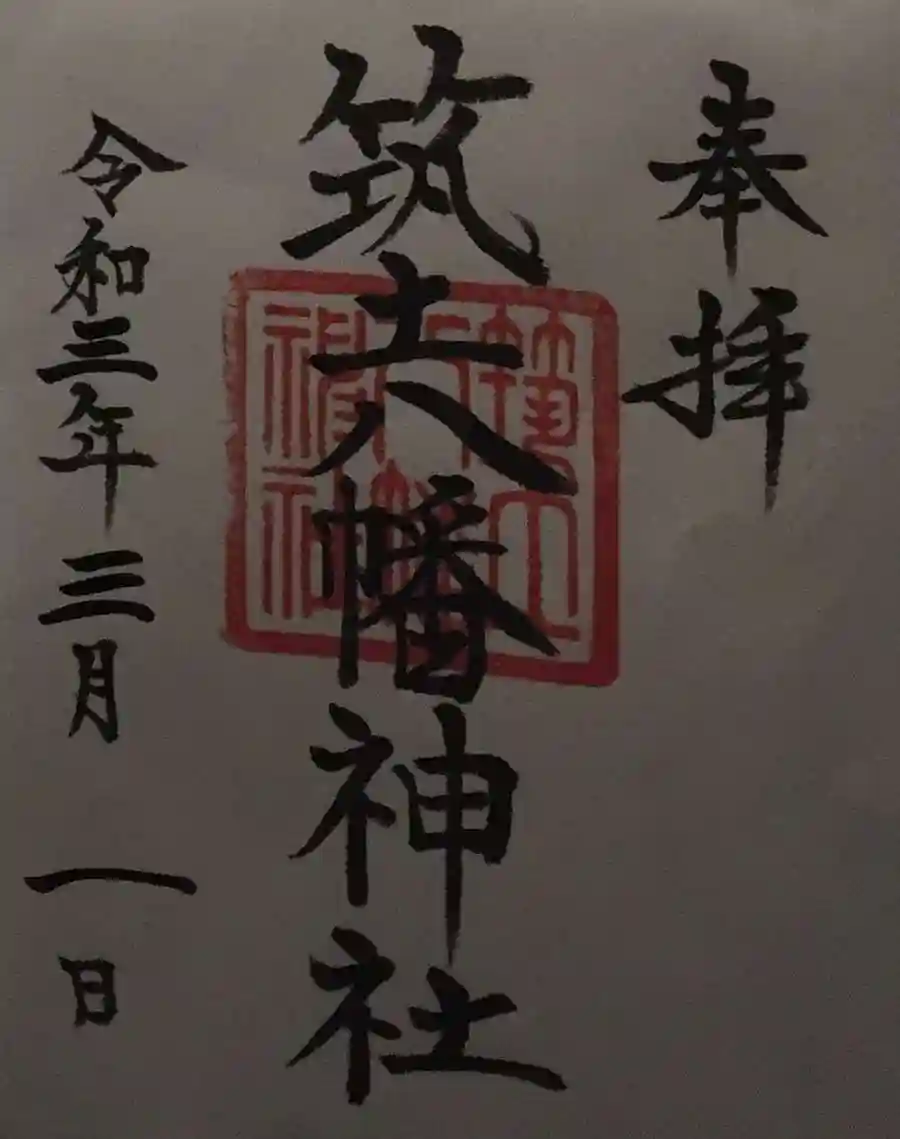 奉拝
筑土八幡神社
令和三年三月一日